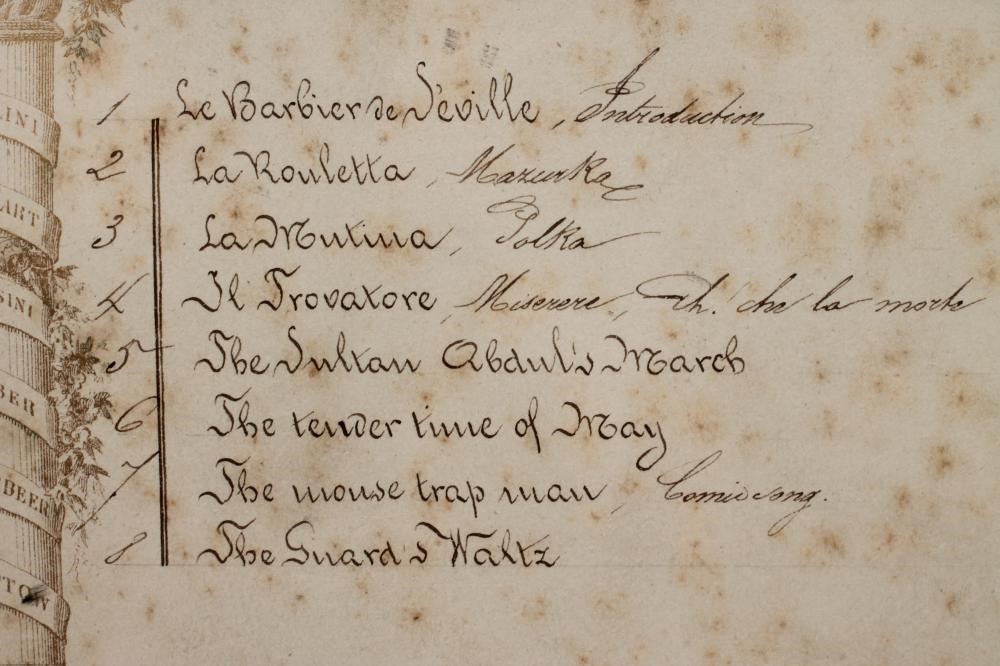 LINI
1 Le Barbier de Séville, Introduction
2 La Rouletta, Mazurka
ART
3 La Mutina, Polka
SINI
4 Il Trovatore, Miserere, Ah. che la morte
5 The Sultan Abdul's March
BER
6 The tender time of May
BEER
7 The mouse trap man, Comic song.
8 The Guards Waltz
TOW